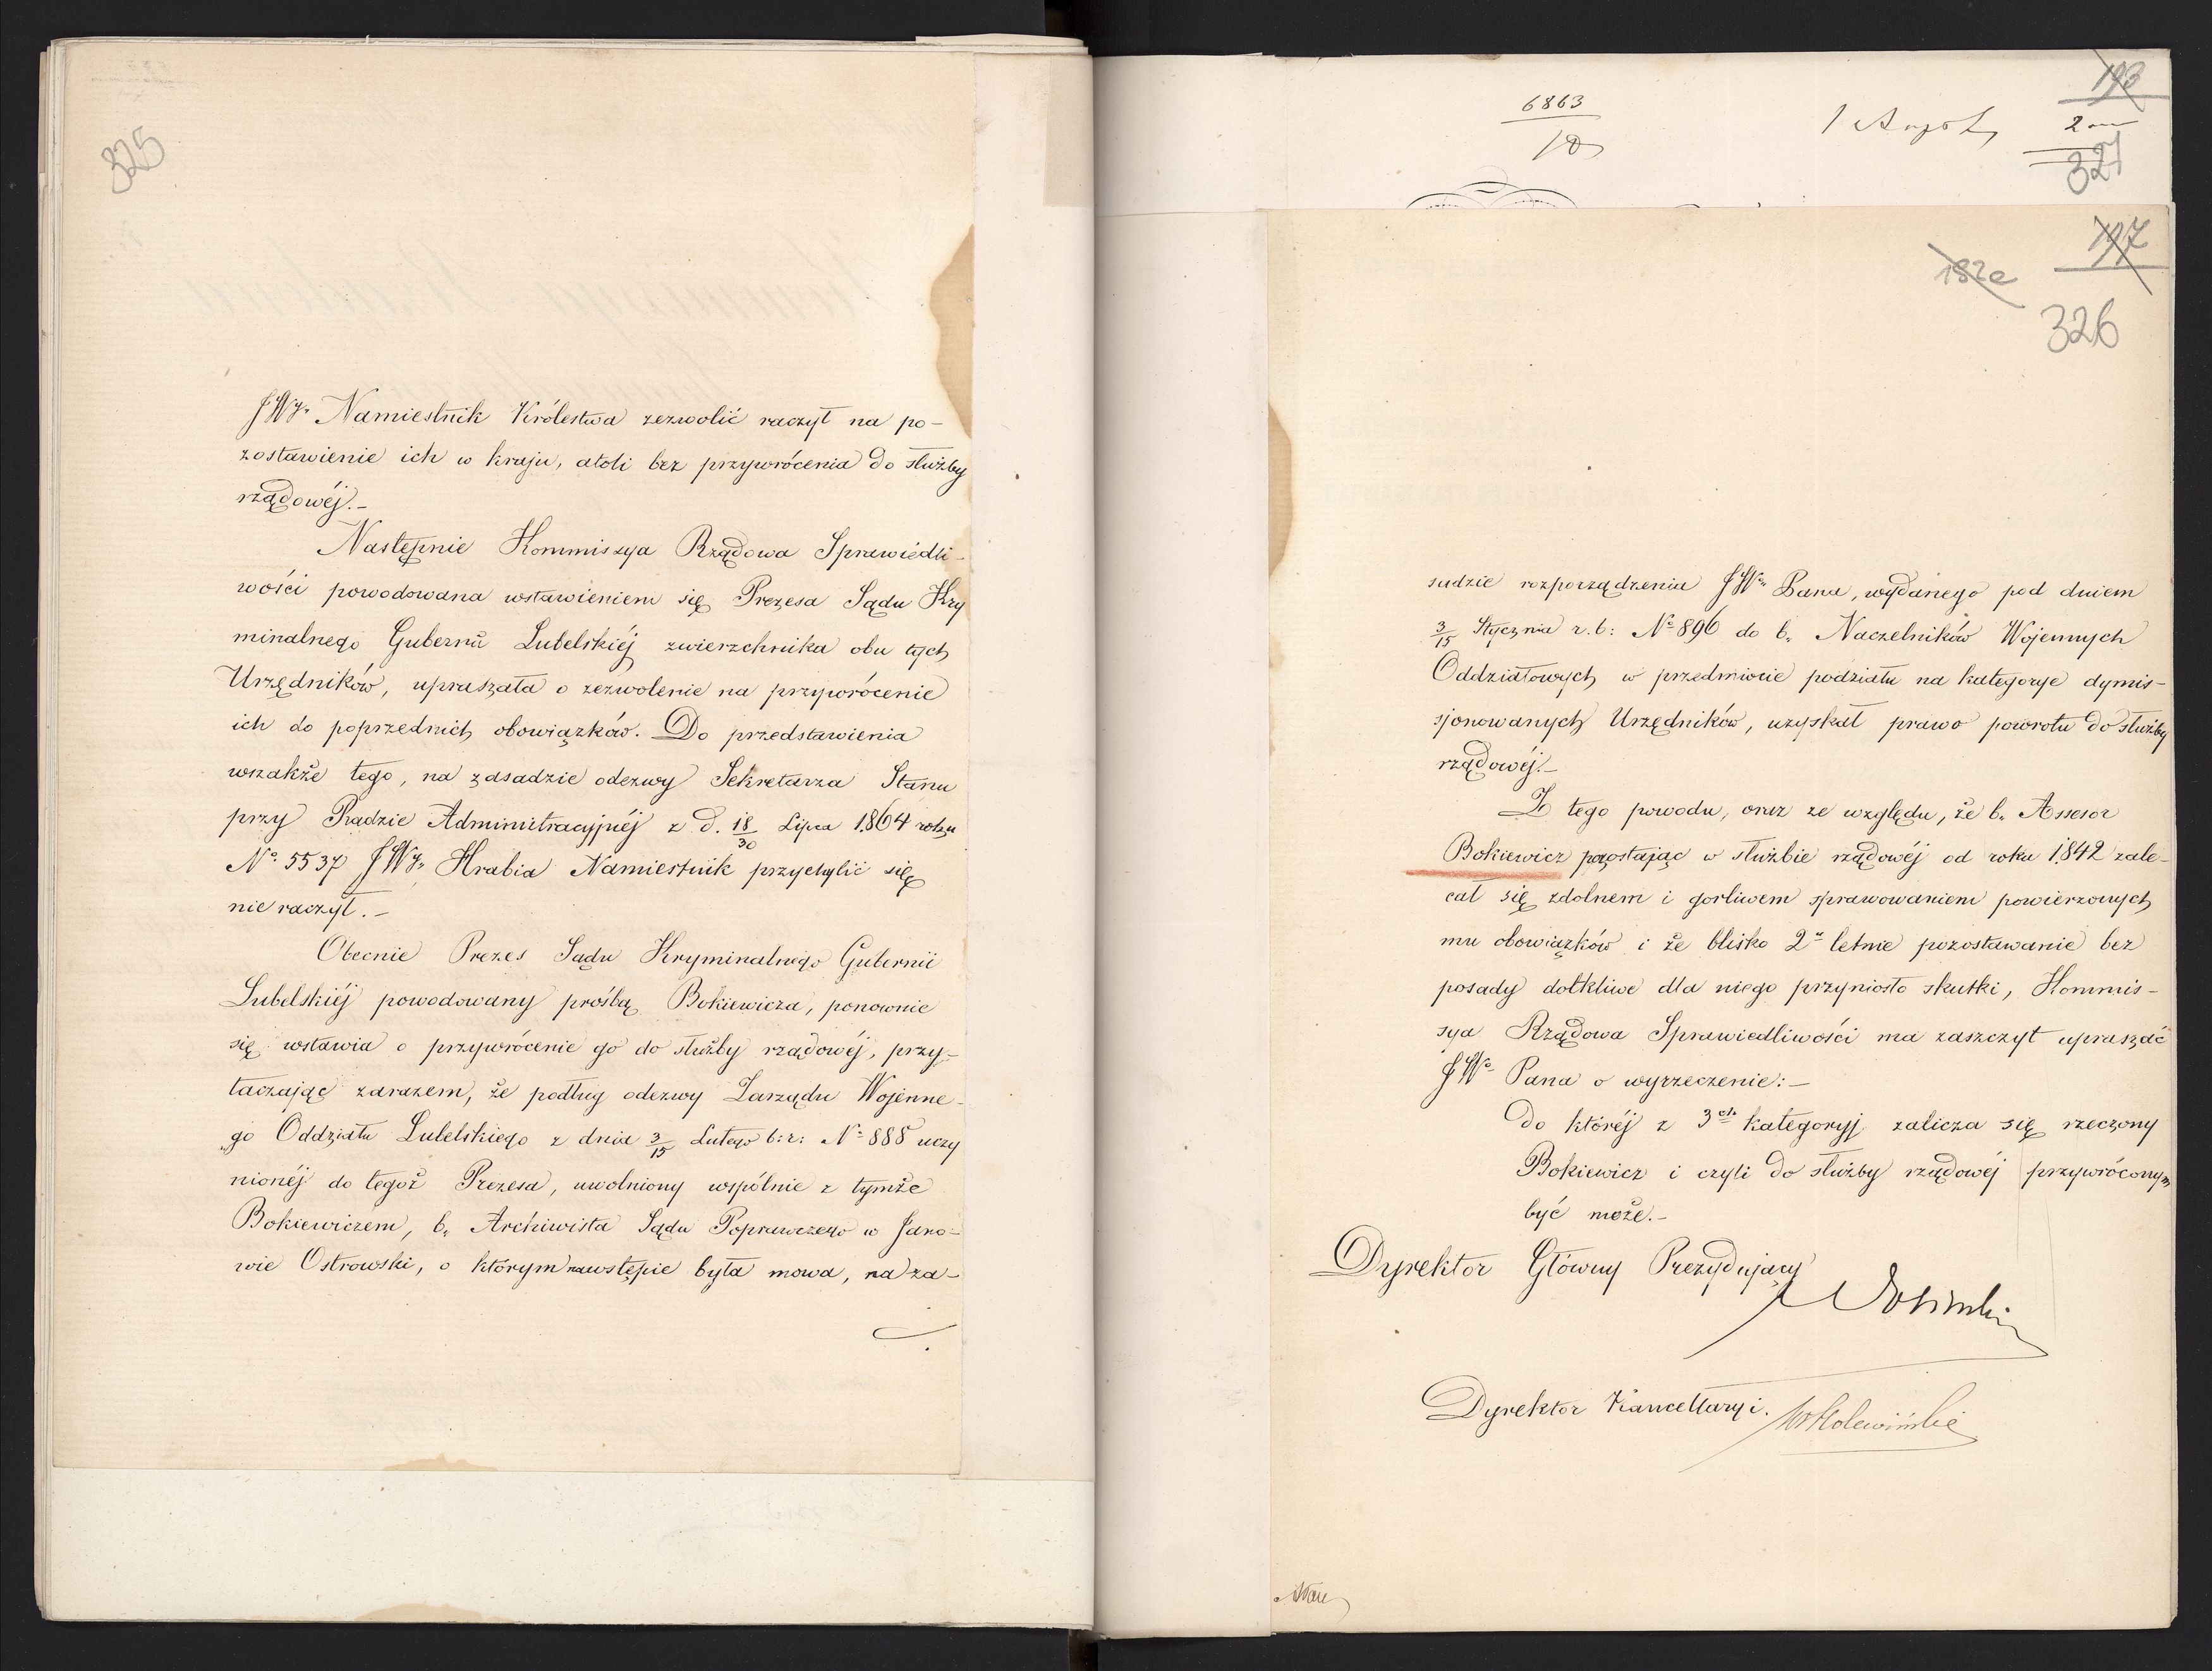 325
JWy. Namiestnik Królestwa zezwolić raczył na po-
zostawienie ich w kraju, atoli bez przywrócenia do służby
rządowéj.-
Następnie Kommissya Rządowa Sprawiedli-
wości powodowana wstawieniem się Prezesa Sądu Kry
minalnego Gubernii Lubelskiéj zwierzchnika obu tych
Urzędników, upraszała o zezwolenie na przywrócenie
ich do poprzednich obowiązków. Do przedstawienia
wszakże tego, na zasadzie odezwy Sekretarza Stanu
przy Radzie Administracyjnéj z d. 18/30 Lipca 1864 roku
No. 5537 JWy. Hrabia Namiestnik przychylić się
nie raczył.-
Obecnie Prezes Sądu Kryminalnego Gubernii
Lubelskiéj powodowany prośbą Bokiewicza, ponownie
się wstawia o przywrócenie go do służby rządowéj, przy-
taczając zarazem, że podług odezwy Zarządu Wojenne-
go Oddziału Lubelskiego z dnia 3/15 Lutego b: r: No 888 uczy
nionéj do tegoż Prezesa, uwolniony wspólnie z tymże
Bokiewiczem, b. Archiwista Sądu Poprawczego w Jano-
wie Ostrowski, o którym na wstępie była mowa, na za-
6863
193
2
327
197
182a
326
sadzie rozporządzenia JWo Pana, wydanego pod dniem
3/15 Stycznia r. b: No 896 do b. Naczelników Wojennych
Oddziałowych w przedmiocie podziału na kategorye dymis-
sjonowanych Urzędników, uzyskał prawo powrotu do służby
rządowéj.-
Z tego powodu, oraz ze względu, że b. Assesor
Bokiewicz pozostając w służbie rządowéj od roku 1842 zale-
cał się zdolnem i gorliwem sprawowaniem powierzonych
mu obowiązków i że blisko 2u letnie pozostawanie bez
posady dotkliwe dla niego przyniosło skutki, Kommis-
sya Rządowa Sprawiedliwości ma zaszczyt upraszać
JWo Pana o wyrzeczenie:-
do któréj z 3ch kategoryj zalicza się rzeczony
Bokiewicz i czyli do służby rządowéj przywróconym
być może.-
Dyrektor Główny Prezydujący
Dyrektor Kancellaryi.